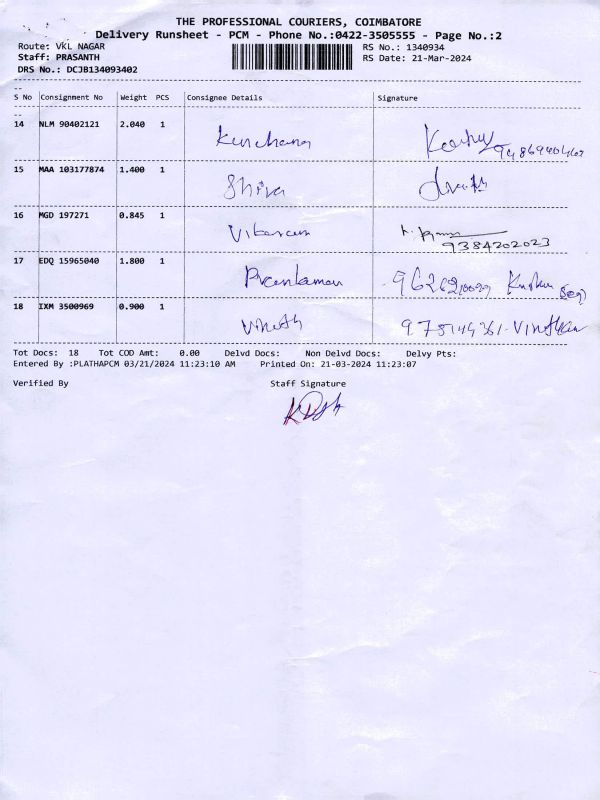 THE PROFESSIONAL COURIERS, COIMBATORE
Delivery Runsheet - PCM - Phone No.:0422-3505555 - Page No.:2
Route: VKL NAGAR RS No.: 1340934
Staff: PRASANTH RS Date: 21-Mar-2024
DRS No.: DCJB134093402
S No Consignment No Weight PCS Consignee Details Signature
14 NLM 90402121 2.040 1
15 MAA 103177874 1.400 1 Shiva
16 MGD 197271 0.845 1
9384202023
17 EDQ 15965040 1.800 1
18 IXM 3500969 0.900 1 Vinoth
Tot Docs: 18 Tot COD Amt: 0.00 Delvd Docs: Non Delvd Docs: Delvy Pts:
Entered By :PLATHAPCM 03/21/2024 11:23:10 AM Printed On: 21-03-2024 11:23:07
Verified By Staff Signature